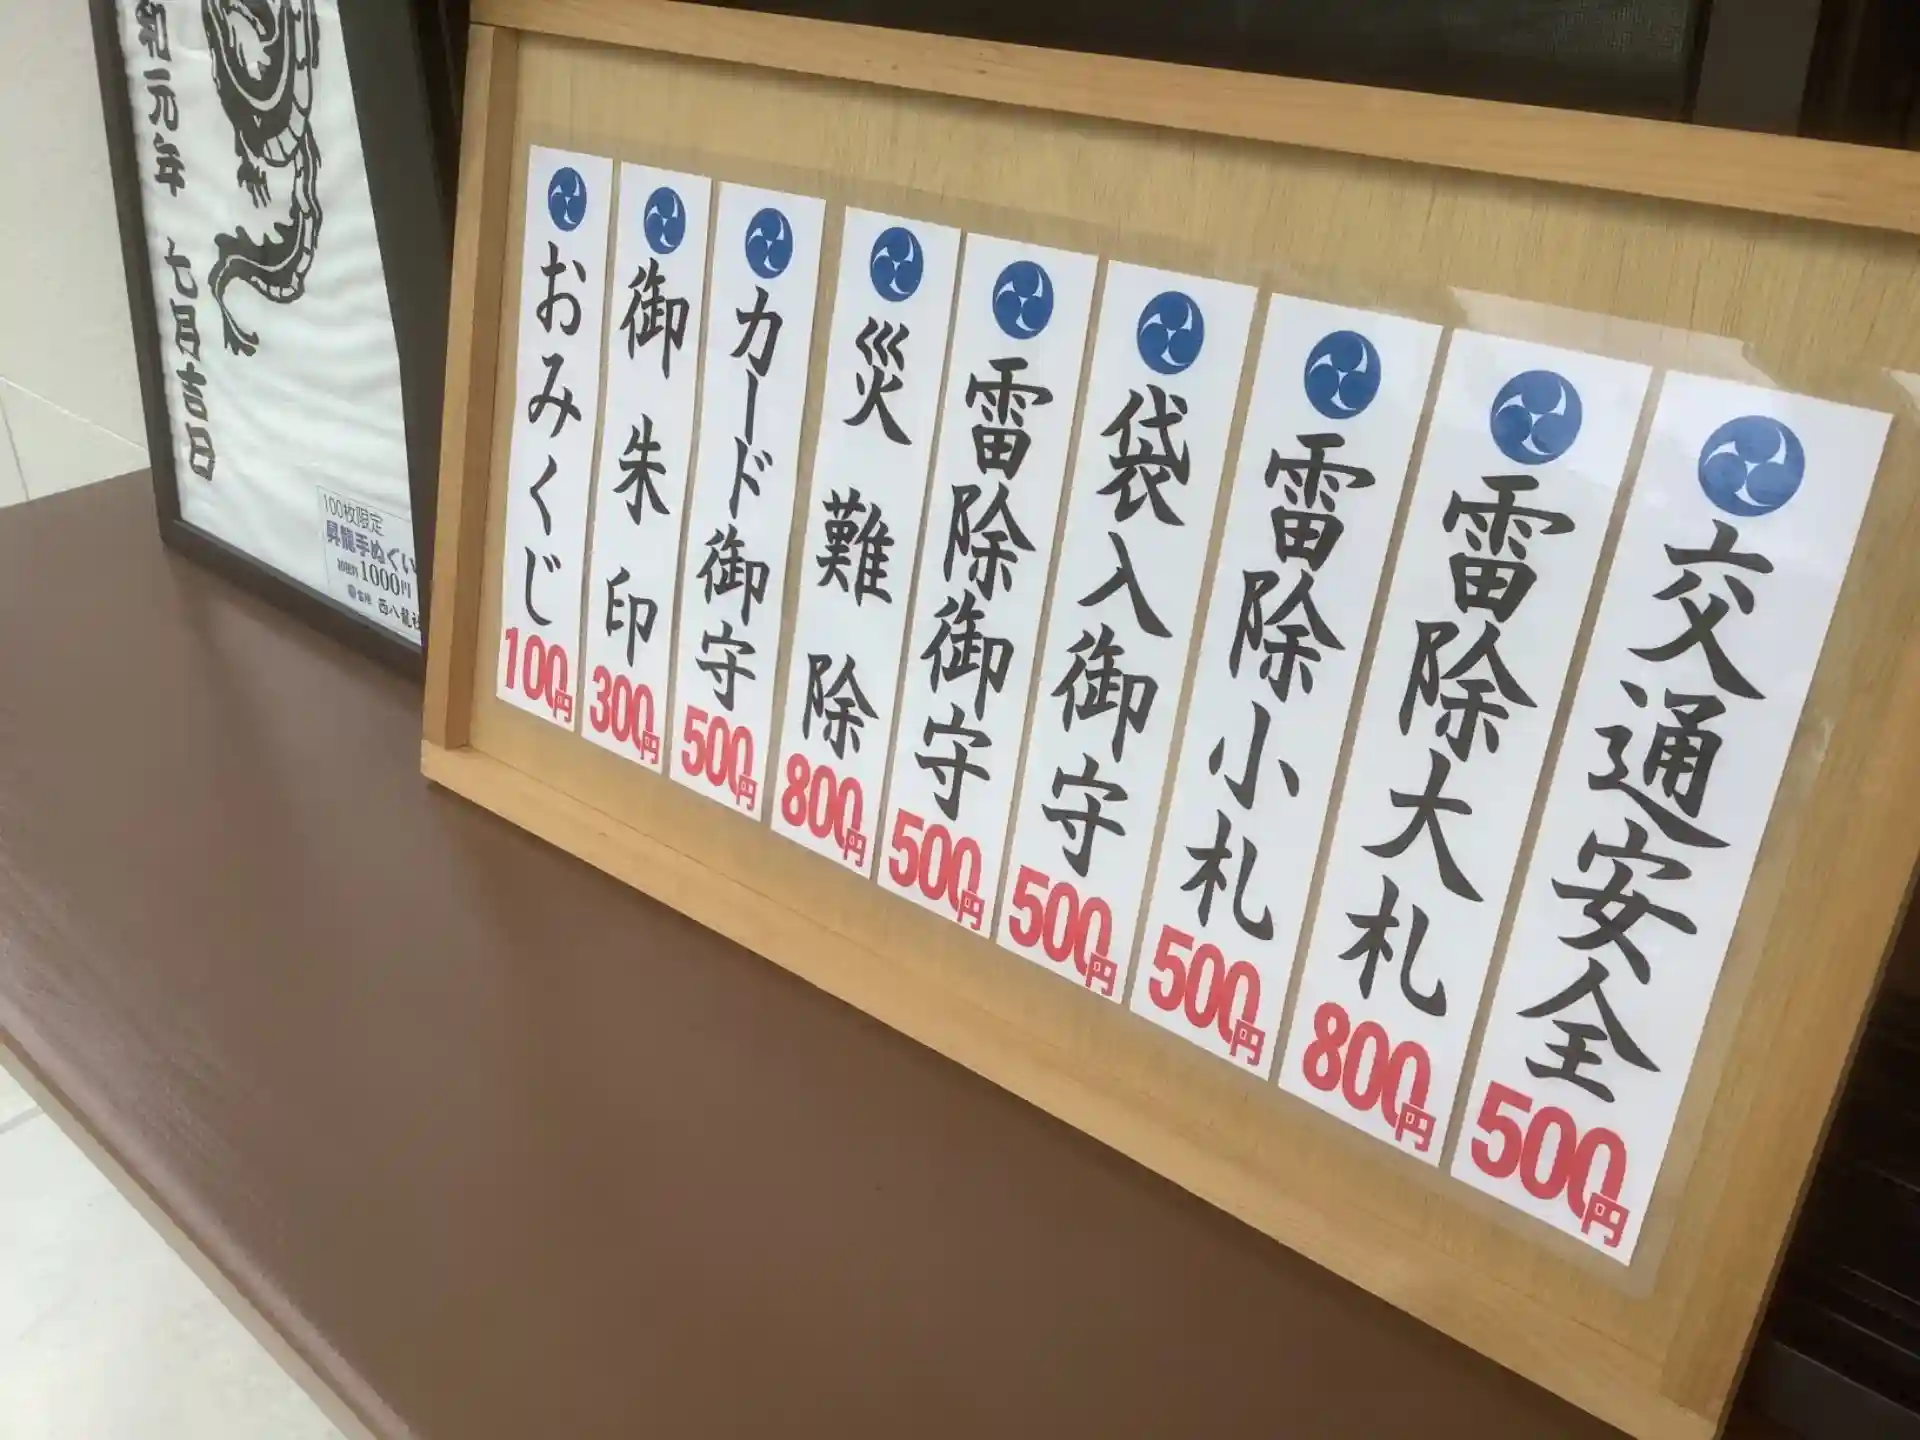 交通安全 500円
雷除大札 800円
雷除小札 500円
袋入御守 500円
雷除御守 500円
災難除 800円
カード御守 500円
御朱印 300円
おみくじ 100円
和元年 七月吉日
100枚限定
昇龍手ぬぐい
1000円